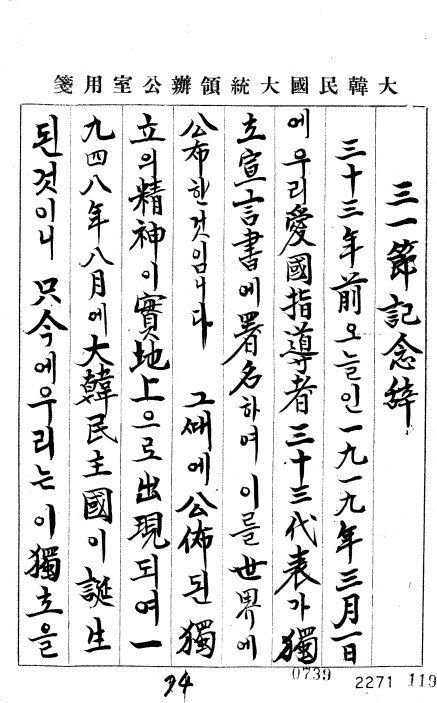 大韓民國大統領辦公室用箋
三一節記念辭
三十三年前오늘인一九一九年三月一日
에우리愛國指導者三十三代表가獨
立宣言書에署名하여이를世界에
公布한것임니다 그ᄯᅢ에公佈된獨
立의精神이實地上으로出現되여一
九四八年八月에大韓民主國이誕生
된것이니 只今에우리는이獨立을
0739
2271 119